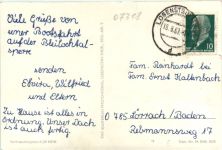 Viele Grüße von
einer Bootsfahrt
auf der Bleilochtal-
sperre
senden
Eloisa, Wilfried
und Eltern
Zu Hause ist alles in
Ordnung. Unser Dach
ist auch fertig.
LOBENSTEIN
10
Fam. Reinhardt bei
Fam. Ernst Kaltenbach
D 785 Lörrach/Baden
Rebmannsweg 17